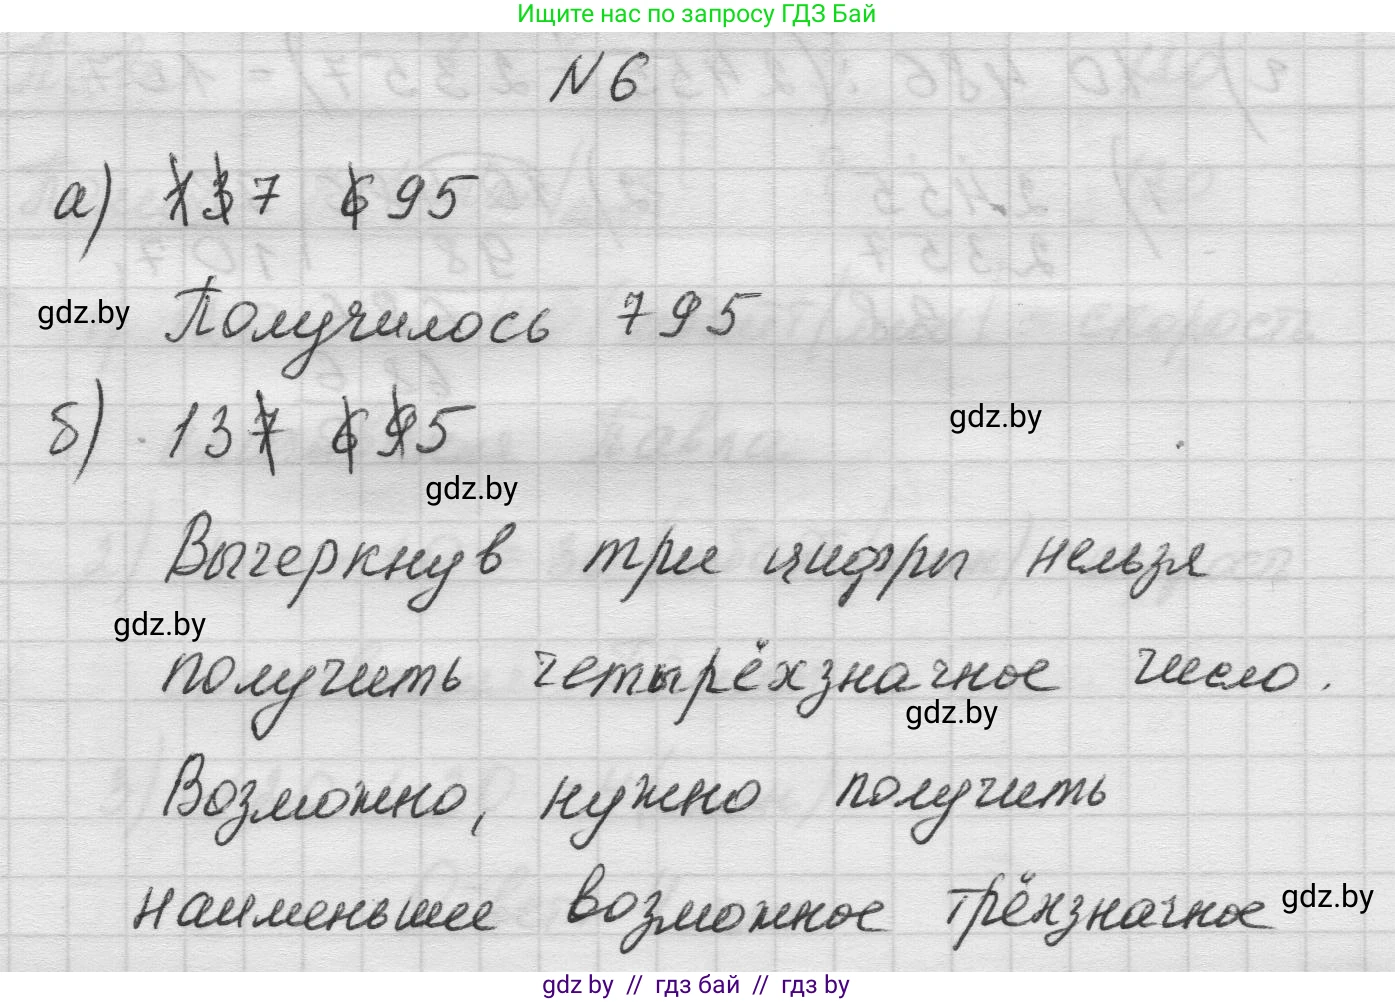 Ищите нас по запросу ГДЗ Бай
N 6
а) 137 695
Получилось 795
gdz.by
б) 137 695
gdz.by
gdz.by
Вычеркнув три цифры нельзя
gdz.by
получить четырёхзначное число.
gdz.by
Возможно, нужно получить
наименьшее возможное трёхзначное
gdz.by
gdz by // гдз бай // гдз by